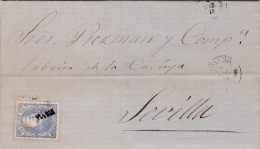 Sres. Pickman y Compª.
fabrica de la Cartuja
Sevilla